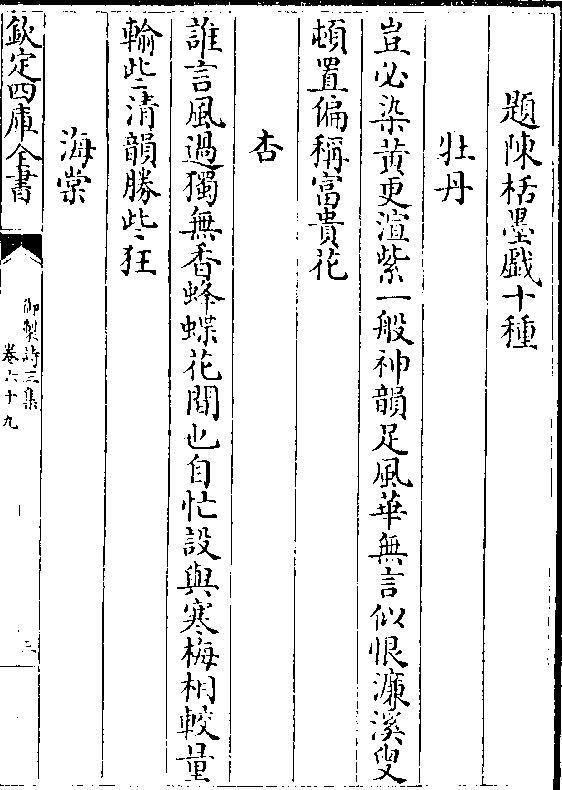 題陳栝墨戲十種
牡丹
豈必染黄更渲紫一般神韻足風華無言似恨濂溪叟
頓置偏稱富貴花
杏
誰言風過獨無香蜂蝶花間也自忙設與寒梅相較量
輸些清韻勝些狂
海棠
欽定四庫全書
御製詩三集
卷六十九
三